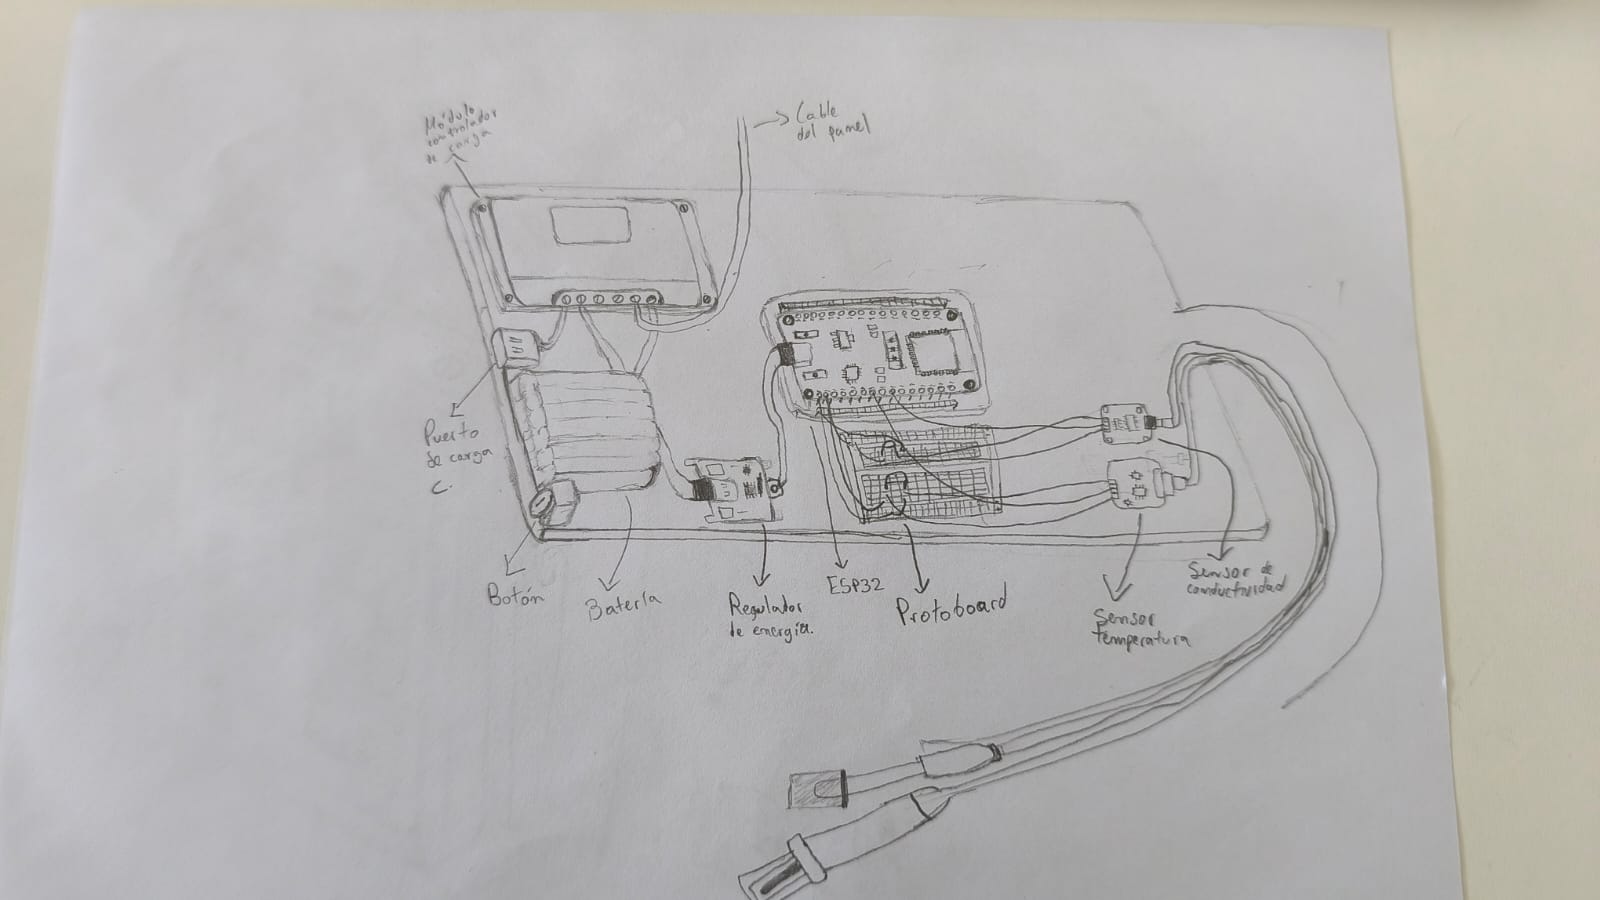 Módulo
controlador
de carga
Cable
del panel
Puerto
de carga
C.
Botón
Batería
Regulador
de energía.
ESP32
Protoboard
Sensor
temperatura
Sensor de
conductividad